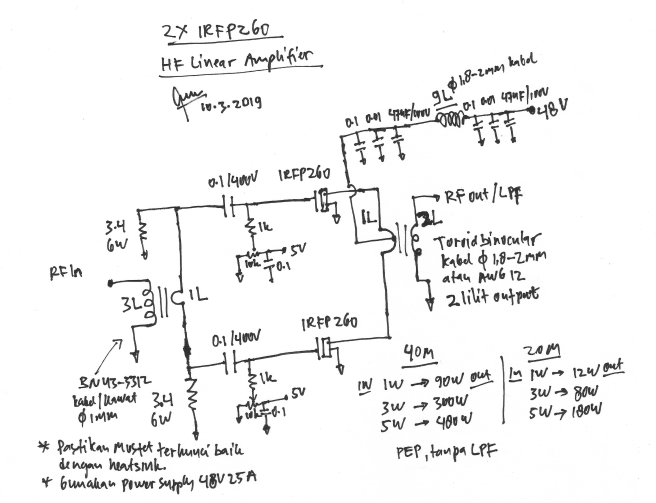 2X IRFP260
HF Linear Amplifier
10.3.2019
9L φ1,8-2mm kabel
0.1 0.01 47uF/100V
0.1 0.01 47uF/100V
48V
0.1/400V
IRFP260
3.4
6W
1k
5V
10k
0.1
RF out/LPF
1L
2L
Toroid binocular
kabel φ 1,8-2mm
atau AWG 12
2 lilit output
RF In
3L
1L
0.1/400V
IRFP260
BN43-3312
kabel/kawat
φ 1mm
3.4
6W
1k
5V
10k
0.1
40M
IN 1W → 90W out
3W → 300W
5W → 480W
PEP, tanpa LPF
20M
In 1W → 12W out
3W → 80W
5W → 180W
* Pastikan Mosfet terkunci baik
dengan heatsink.
* Gunakan power supply 48V 25A